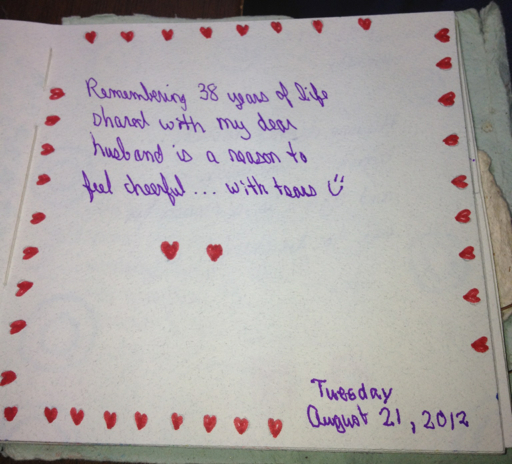 Remembering 38 years of life
shared with my dear
husband is a reason to
feel cheerful... with tears ت
Tuesday
August 21, 2012